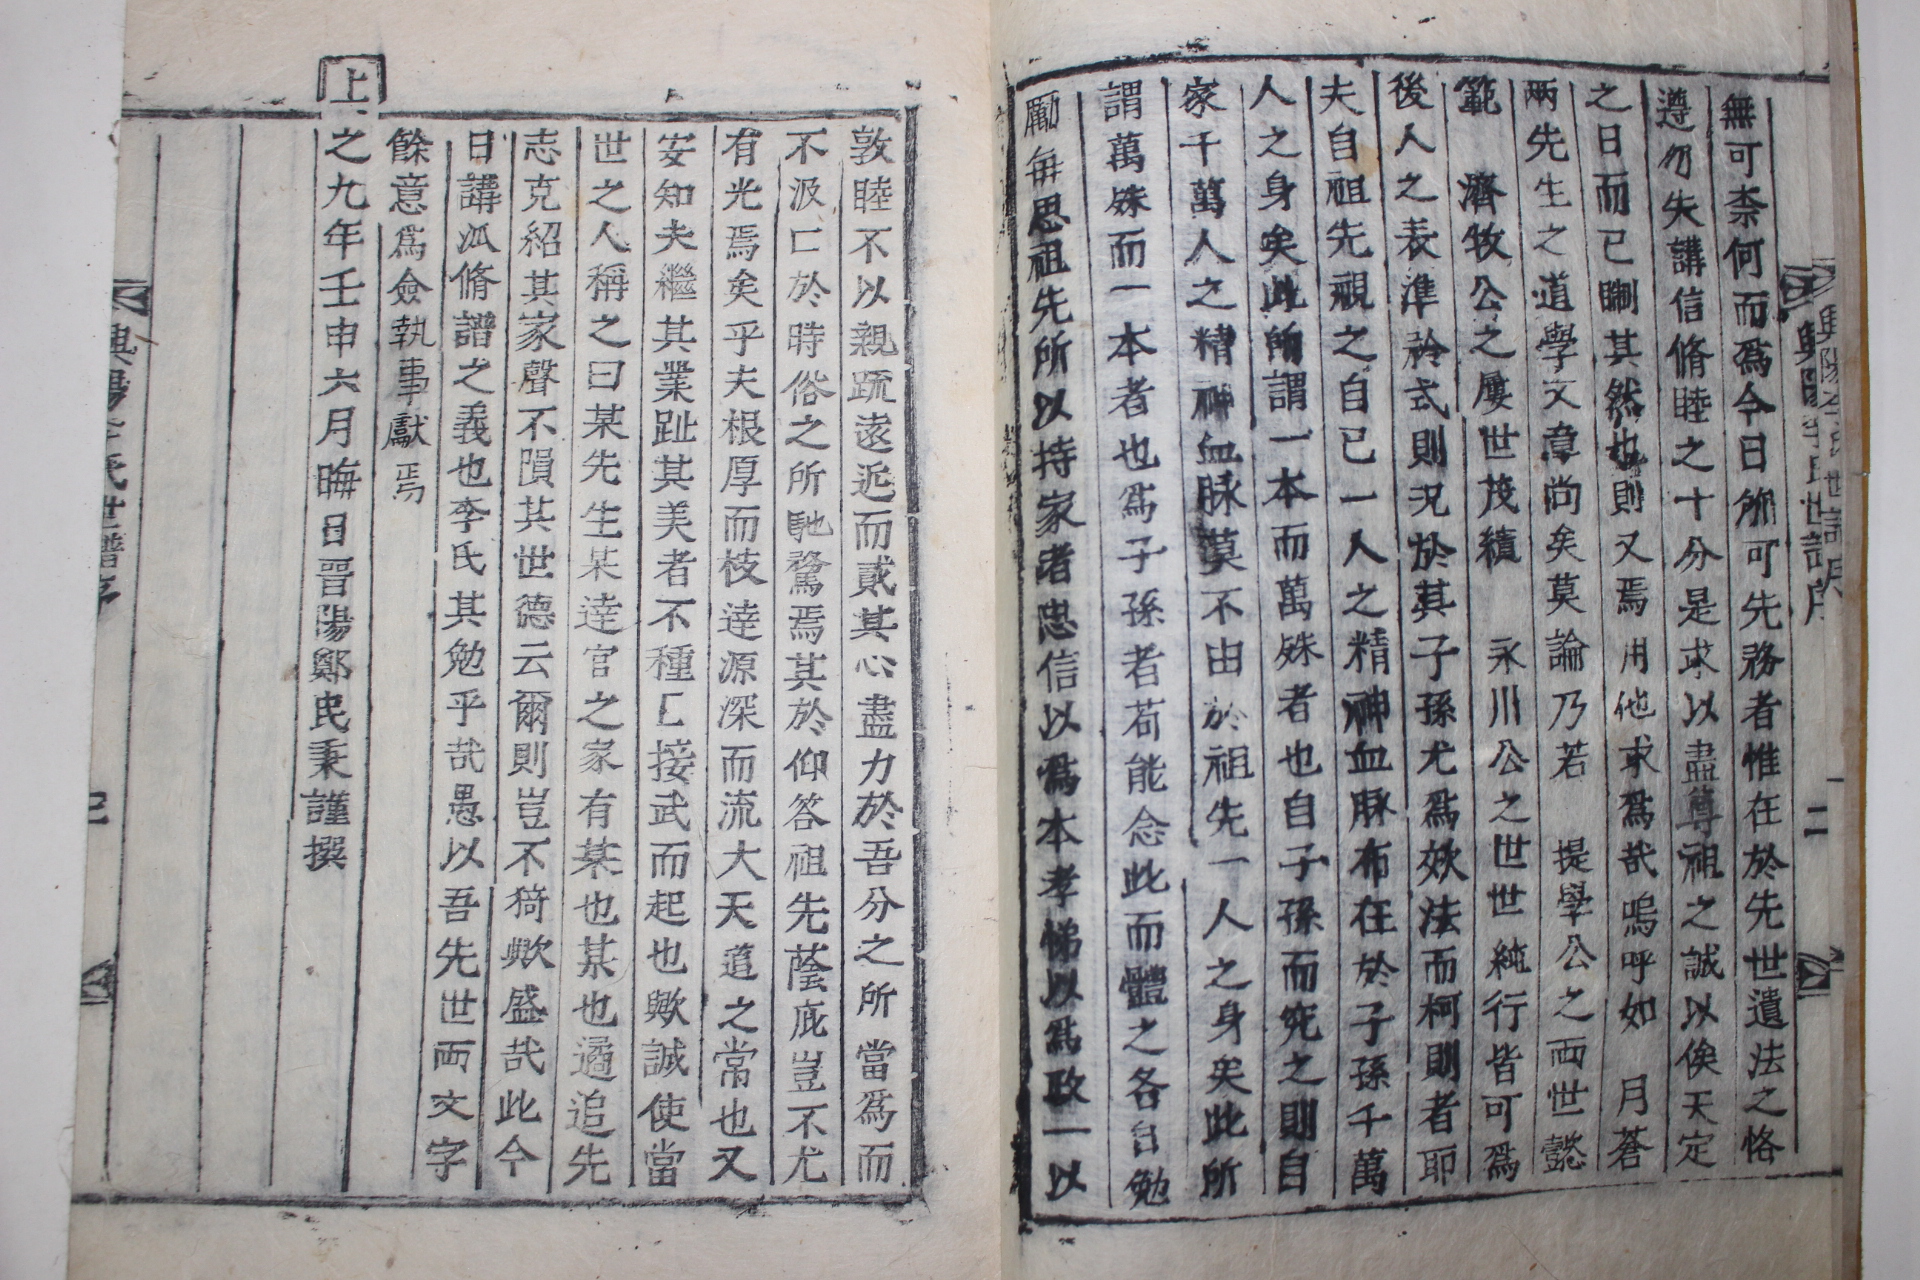 無可柰何而爲今日所可先務者惟在於先世遺法之恪
遵勿失講信脩睦之十分是求以盡尊祖之誠以俟天定
之日而已瞷其然也則又焉用他求爲哉嗚呼如 月蒼
兩先生之道學文章尚矣莫論乃若 提學公之西世懿
範 濟牧公之屢世茂績 永川公之世世純行皆可爲
後人之表準矜式則況於其子孫尤爲妙法而柯則者耶
夫自祖先視之自己一人之精神血脉布在於子孫千萬
人之身矣此所謂一本而萬殊者也自子孫而究之則自
家千萬人之精神血脉莫不由於祖先一人之身矣此所
謂萬殊而一本者也爲子孫者苟能念此而體之各自勉
勵每思祖先所以持家者忠信以爲本孝悌以爲政一以
興陽李氏世譜序 二
敦睦不以親疏遠近而貳其心盡力於吾分之所當爲而
不汲匸於時俗之所馳騖焉其於仰答祖先蔭庇豈不尤
有光焉矣乎夫根厚而枝達源深而流大天道之常也又
安知夫繼其業趾其美者不種匸接武而起也歟誠使當
世之人稱之曰某先生某達官之家有某也某也遹追先
志克紹其家聲不隕其世德云爾則豈不猗歟盛哉此今
日講派脩譜之義也李氏其勉乎哉愚以吾先世西文字
餘意爲僉執事獻焉
上之九年壬申六月晦日晋陽鄭民秉謹撰
興陽李氏世譜序